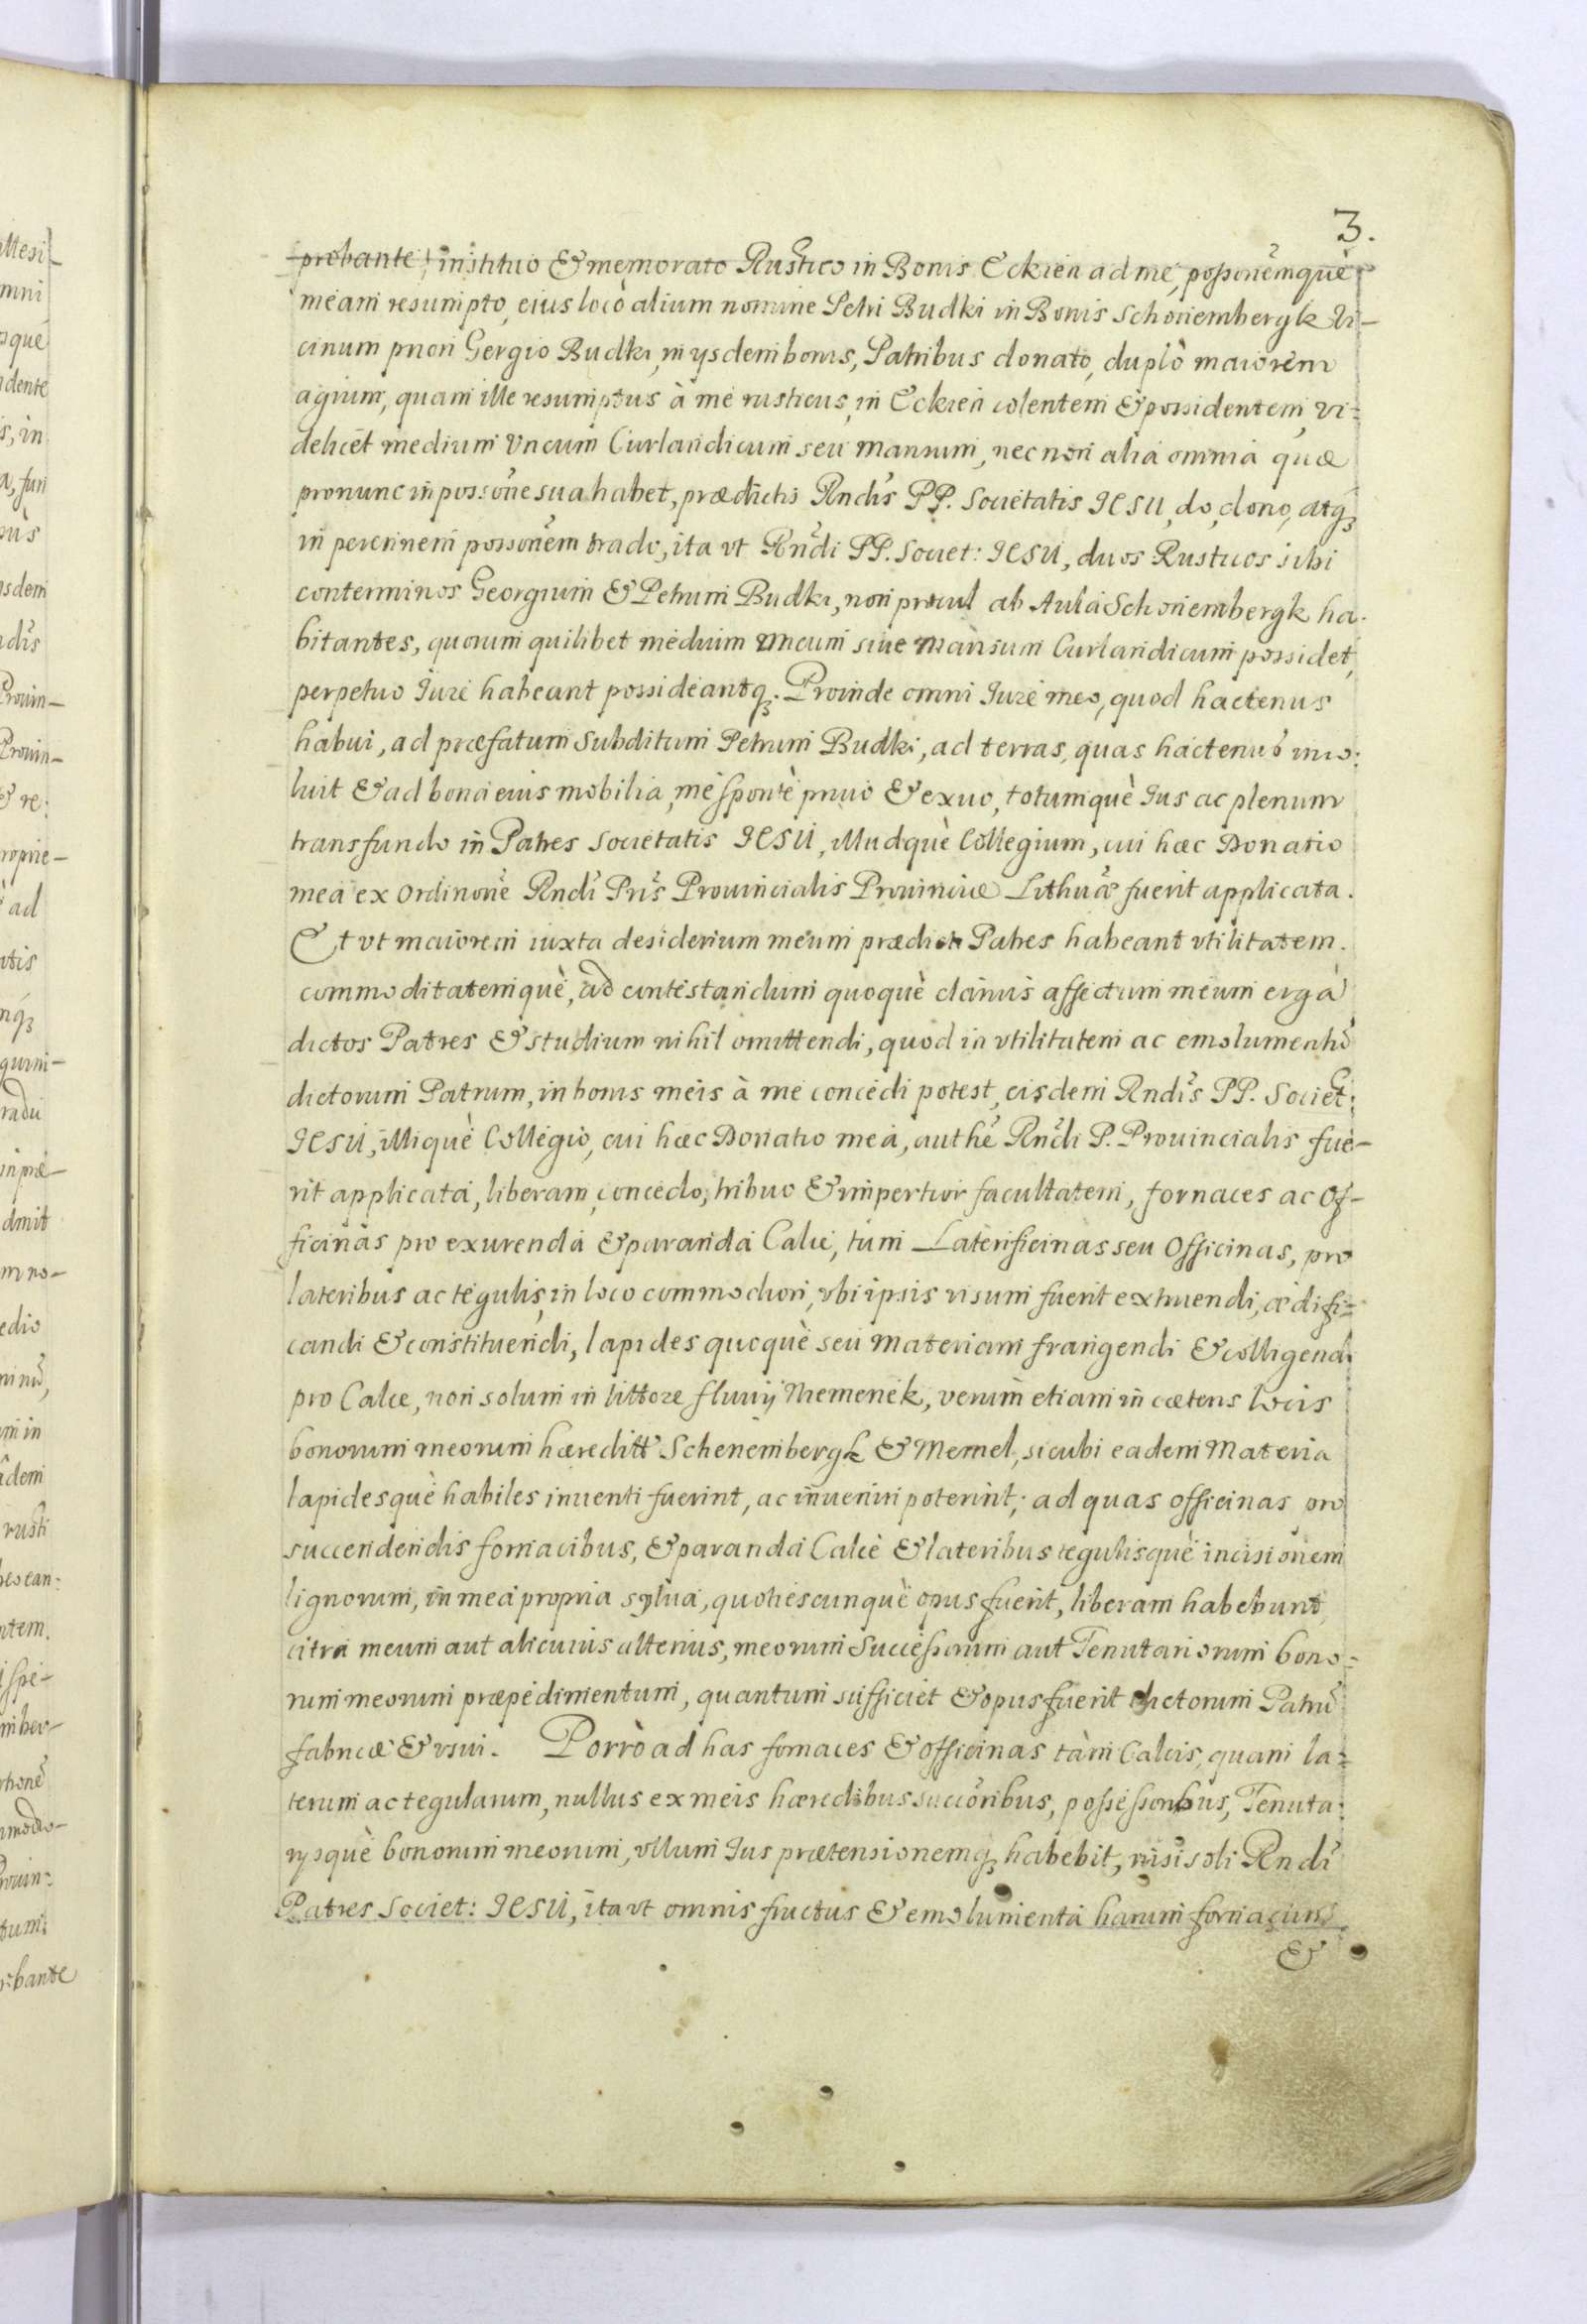 3.
probante, instituo & memorato Rustico in Bonis Eckien ad me, possonẽmquè
meam resumpto, eius locò alium nomine Petri Budki in Bonis Schonembergk Vi-
cinum priori Gergio Budki, in ysdem bonis, Patribus donato, duplò maiorem
agrum, quam ille resumptus à me rusticus, in Eckien colentem & possidentem, vi=
delicet medium Vncum Curlandicum seu mansum, nec non alia omnia quæ
pro nunc in possone sua habet, prædictis Rndis PP. Societatis IESU, do, dono, atq3
in perennem possonẽm trado, ita vt Rndi PP. Societ: IESU, duos Rusticos sibi
conterminos Georgium & Petrum Budki, non procul ab Aula Schonembergk ha-
bitantes, quorum quilibet medium Vncum siue Mansum Curlandicum possidet,
perpetuo Iure habeant possideantq3. Proinde omni Iure meo, quod hactenus
habui, ad præfatum Subditum Petrum Budki, ad terras, quas hactenus inco:
luit & ad bona eius mobilia, me spontè priuo & exuo, totumquè Ius ac plenum
transfundo in Patres Societatis IESU, illudquè Collegium, cui hæc Donatio
mea ex Ordinone Rndi Pris Prouincialis Prouinciæ Lithuæ fuerit applicata.
Et vt maiorem iuxta desiderium meum prædicti Patres habeant vtilitatem
commoditatemquè, ad contestandum quoquè clarius affectum meum erga
dictos Patres & studium nihil omittendi, quod in vtilitatem ac emolumentũ
dictorum Patrum, in bonis meis à me concedi potest, eisdem Rndis PP. Societ:
IESU, illiquè Collegio, cui hæc Donatio mea, authẽ Rndi P. Prouincialis fue-
rit applicata, liberam, concedo, tribuo & impertior facultatem, fornaces ac Of-
ficinas pro exurenda & paranda Calce, tum Laterificinas seu Officinas, pro
lateribus ac tegulis, in loco commodiori, vbi ipsis visum fuerit extruendi, ædifi=
candi & constituendi, lapides quoquè seu Materiam frangendi & colligendi
pro Calce, non solum in littore fluuij Memenek, verum etiam in cæteris locis
bonorum meorum hæreditt Schenembergk & Memel, sicubi eadem Materia
lapidesquè habiles inuenti fuerint, ac inueniri poterint; ad quas officinas pro
succendendis fornacibus, & paranda Calce & lateribus tegulisquè incisionem
lignorum, in mea propria sylua, quotiescunquè opus fuerit, liberam habebunt
citra meum aut alicuius alterius, meorum Successorum aut Tenutariorum bono=
rum meorum præpedimentum, quantum sufficiet & opus fuerit dictorum Patrũ
fabricæ & vsui. Porrò ad has fornaces & officinas tàm Calcis, quam la=
terum ac tegularum, nullus ex meis hæredibus succõribus, possessoribus, Tenuta:
rysquè bonorum meorum, vllum Ius prætensionemq3 habebit, nisi soli Rndi
Patres Societ: IESU, ita vt omnis fructus & emolumenta harum fornacum
&